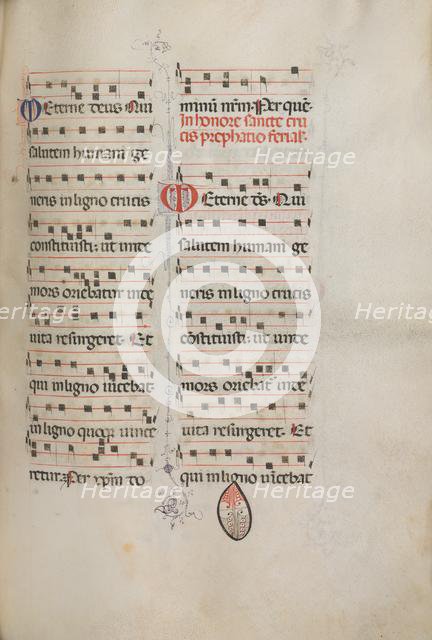 Eterne deus Qui
salutem humani ge
neris in ligno crucis
constituisti: ut unde
mors oriebatur inde
uita resurgeret. Et
qui in ligno uincebat
in ligno quoque uince
retur. Per xpm do
minum nrm. Per quē.
In honore sancte cru
cis prephatio ferial.
Eterne ds. Qui
salutem humani ge
neris in ligno crucis
cōstituisti: ut unde
mors oriebat inde
uita resurgeret. Et
qui in ligno uincebat
Heritage
Heritage
Heritage
Heritage
Heritage
Heritage
Heritage
Heritage